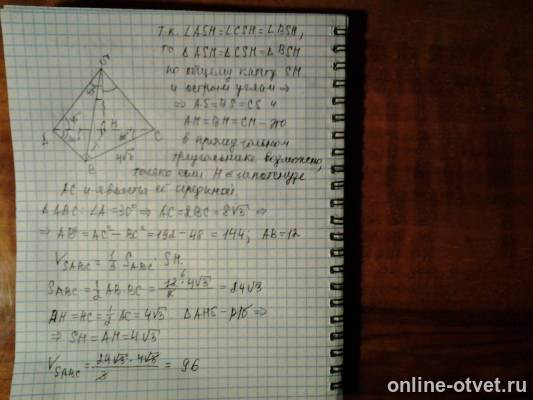 Т.к. ∠ASH=∠CSH=∠BSH,
то ΔASH=ΔCSH=ΔBSH
по общему катету SH
и острым углам ⇒
⇒ AS=BS=CS и
AH=BH=CH - это
в прямоугольном
треугольнике возможно,
только если H ∈ гипотенузе
AC и является её серединой
ΔABC: ∠A=30° ⇒ AC=2BC=8√3 ⇒
⇒ AB²=AC²-BC²=192-48=144; AB=12
V_SABC = 1/3 S_ABC · SH.
S_ABC = 1/2 AB·BC = 12·4√3/2 = 24√3
AH=HC=1/2 AC=4√3. ΔAHS - р/б ⇒
⇒ SH=AH=4√3
V_SABC = 24√3·4√3/3 = 96
S
A
H
C
B
4√3
online-otvet.ru